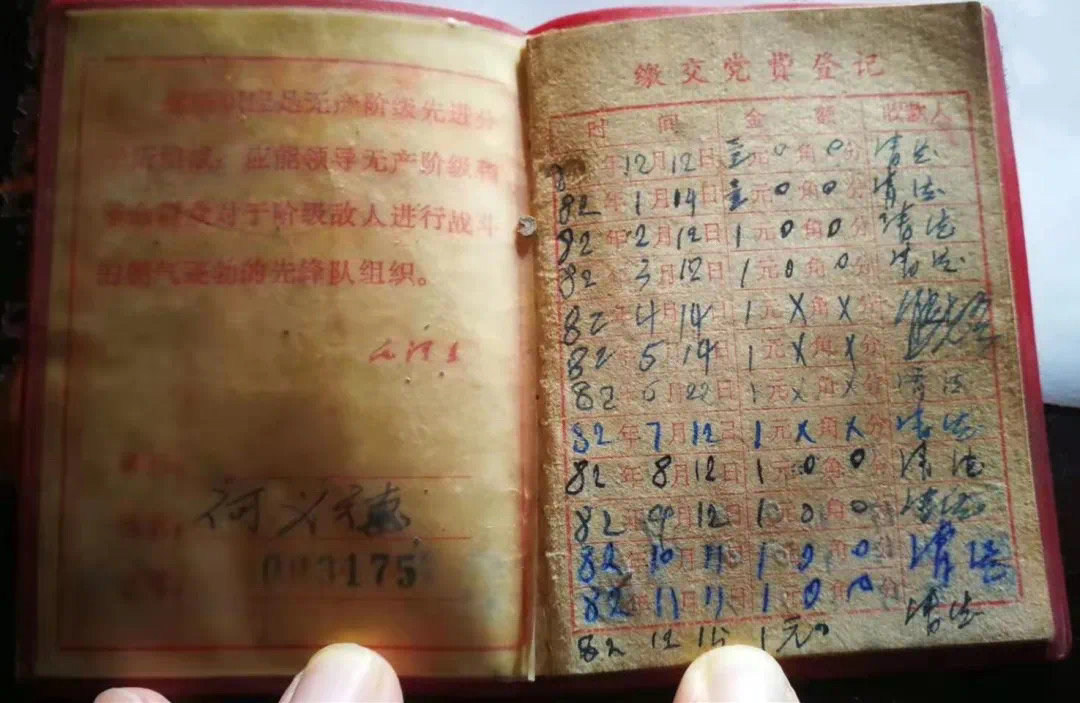 是无产阶级先进分
应能领导无产阶级和
于阶级敌人进行战斗
气蓬勃的先锋队组织。
毛泽东
何义
003175
缴交党费登记
时间 金额 收款人
年12月12日 元0角0分 清法
82年1月14日 元0角0分 清法
82年2月12日 1元0角0分 清法
82年3月12日 1元0角0分 清法
82 4 14 1元X角X分
82 5 14 1元X角X分
82 6月22日 1元X角X分 清法
82年7月12日 1元X角X分 清法
82年8月12日 1元0角0分 清法
82 9 12 1 0 0 清法
82 10 11 1 0 0 清法
82 11 11 1 0 0
82 12 15 1元0 清法